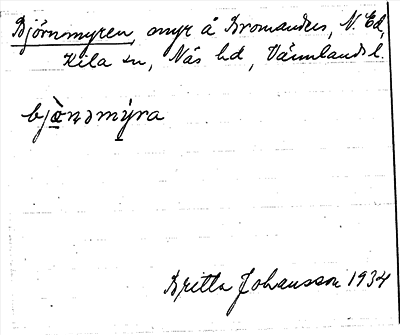 Björnmyren, myr å Bromanders, N. Ed,
Kila sn, Näs hd, Värmlands l.
bjæ̀nəmýra
Britta Johansson 1934